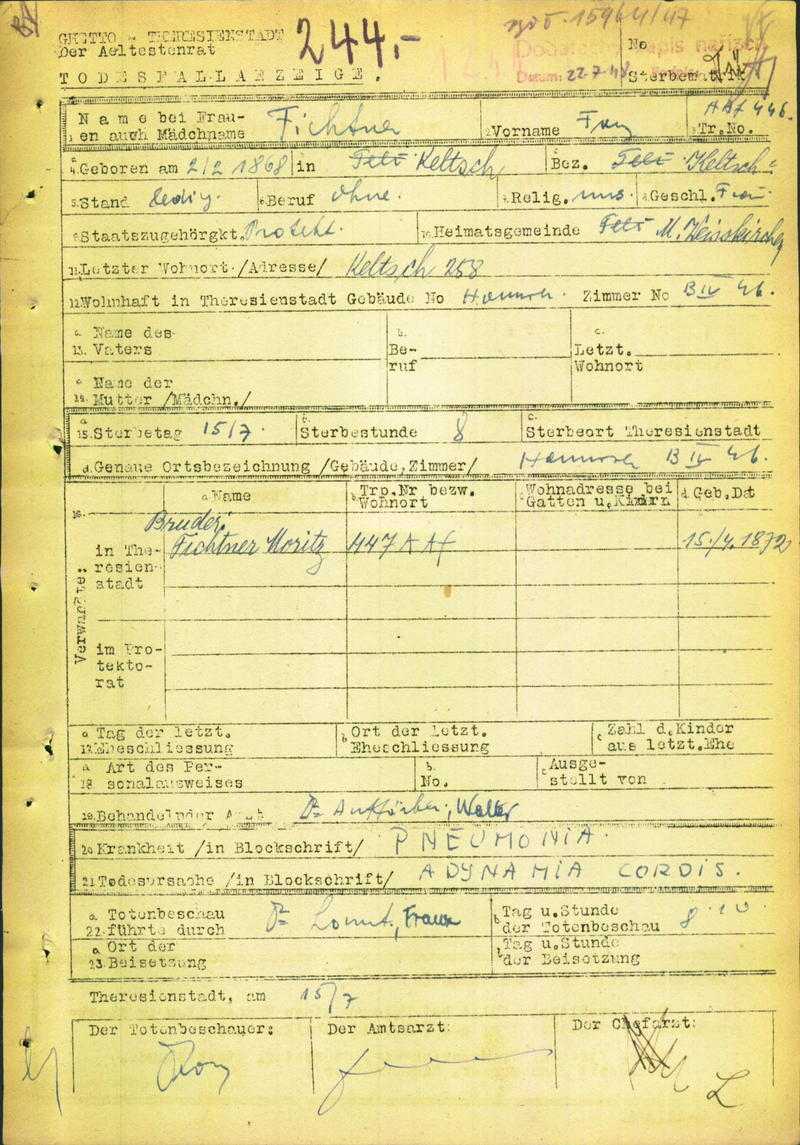 GHETTO - THERESIENSTADT
244.-
15964/47
Der Aeltestenrat
No
TODESFALLANZEIGE.
Datum: 22.7.48
Name bei Frau-
1. en auch Mädchname Fichtner
2. Vorname
AAf 446.
3. Tr.No.
4. Geboren am 2/2 1868 in Keltsch
Bez. Keltsch
5. Stand ledig.
6. Beruf ohne.
7. Relig. mos.
8. Geschl. Frau
9. Staatszugehörgkt. Protekt.
10. Heimatsgemeinde M. Weisskirchen
11. Letzter Wohnort /Adresse/ Keltsch 258
12. Wohnhaft in Theresienstadt Gebäude No Hannov. Zimmer No B IV 46.
a. Name des
13. Vaters
b. Be-
ruf
c. Letzt.
Wohnort
a. Name der
14. Mutter /Mädchn./
a.
15. Sterbetag 15/7.
b. Sterbestunde 8
c. Sterbeort Theresienstadt
d. Genaue Ortsbezeichnung /Gebäude, Zimmer/ Hannov B IV 46.
16.
a. Name
b. Trp.Nr bezw.
Wohnort
c. Wohnadresse bei
Gatten u. Kindrn
d. Geb. Dat
Verwandte:
in The-
resien-
stadt
Bruder:
Fichtner Moritz 447 AAf 15./4. 1872
im Pro-
tekto-
rat
a. Tag der letzt.
17. Eheschliessung
b. Ort der letzt.
Eheschliessung
c. Zahl d. Kinder
aus letzt. Ehe
a. Art des Per-
18. sonalausweises
b.
No.
c. Ausge-
stellt von
19. Behandelnder Dr, Walter
20. Krankheit /in Blockschrift/ PNEUMONIA.
21. Todesursache /in Blockschrift/ ADYNAMIA CORDIS.
a. Totenbeschau
22. führte durch Dr, Franz
b. Tag u. Stunde
der Totenbeschau
a. Ort der
23. Beisetzung
b. Tag u. Stunde
der Beisetzung
Theresienstadt, am 15/7
Der Totenbeschauer:
Der Amtsarzt:
Der Chefarzt: